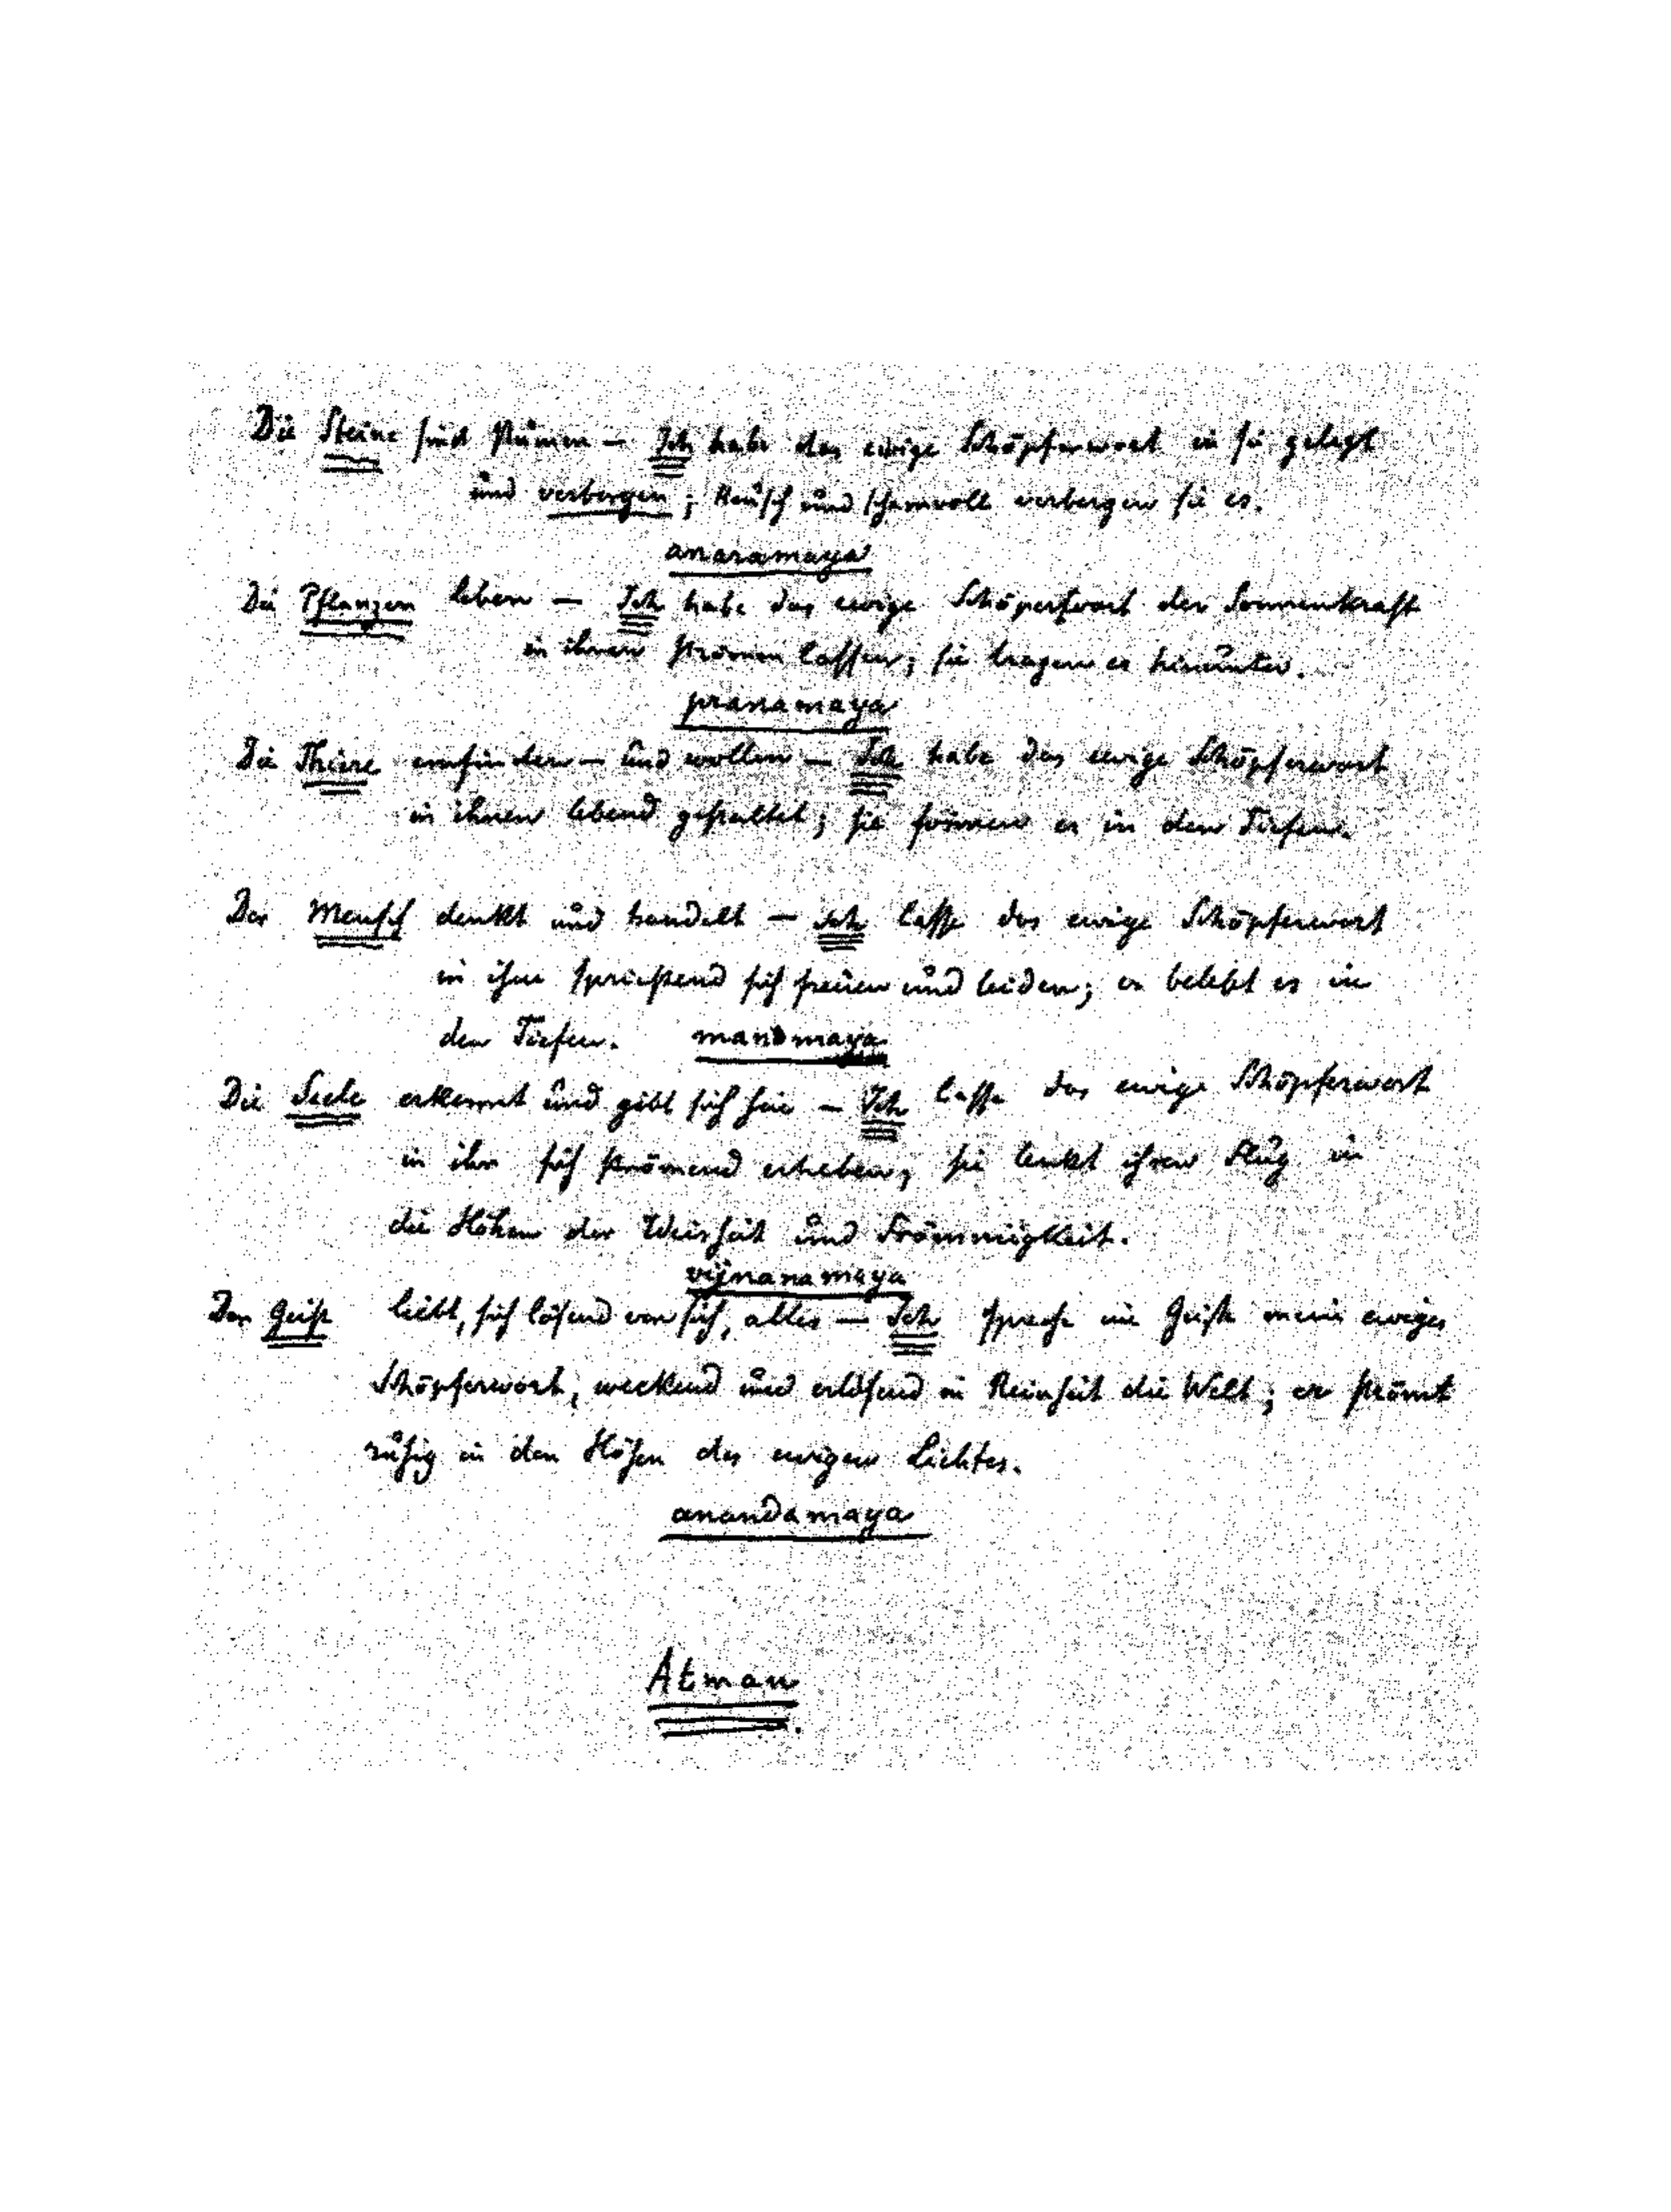 Die Steine sind stumm — Ich habe das ewige Schöpferwort in sie gelegt
und verborgen; keusch und schamvoll verbergen sie es.
anaramaya
Die Pflanzen leben — Ich habe das ewige Schöperfwort der Sonnenkraft
in ihnen strömen lassen; sie tragen es hinunter.
pranamaya
Die Thiere empfinden — und wollen — Ich habe das ewige Schöpferwort
in ihnen lebend gestaltet; sie formen es in den Tiefen.
Der Mensch denkt und handelt — Ich lasse das ewige Schöpferwort
in ihm spriessend sich freuen und leiden; er belebt es in
den Tiefen. manomaya
Die Seele erkennt und gibt sich hin — Ich lasse das ewige Schöpferwort
in ihr sich strömend erheben; sie lenkt ihren Flug in
die Höhen der Weisheit und Frömmigkeit.
vijnanamaya
Der Geist liebt, sich lösend von sich, alles — Ich spreche im Geist mein ewiges
Schöpferwort, weckend und erlösend in Reinheit die Welt; er strömt
ruhig in den Höhen des ewigen Lichtes.
anandamaya
Atman.